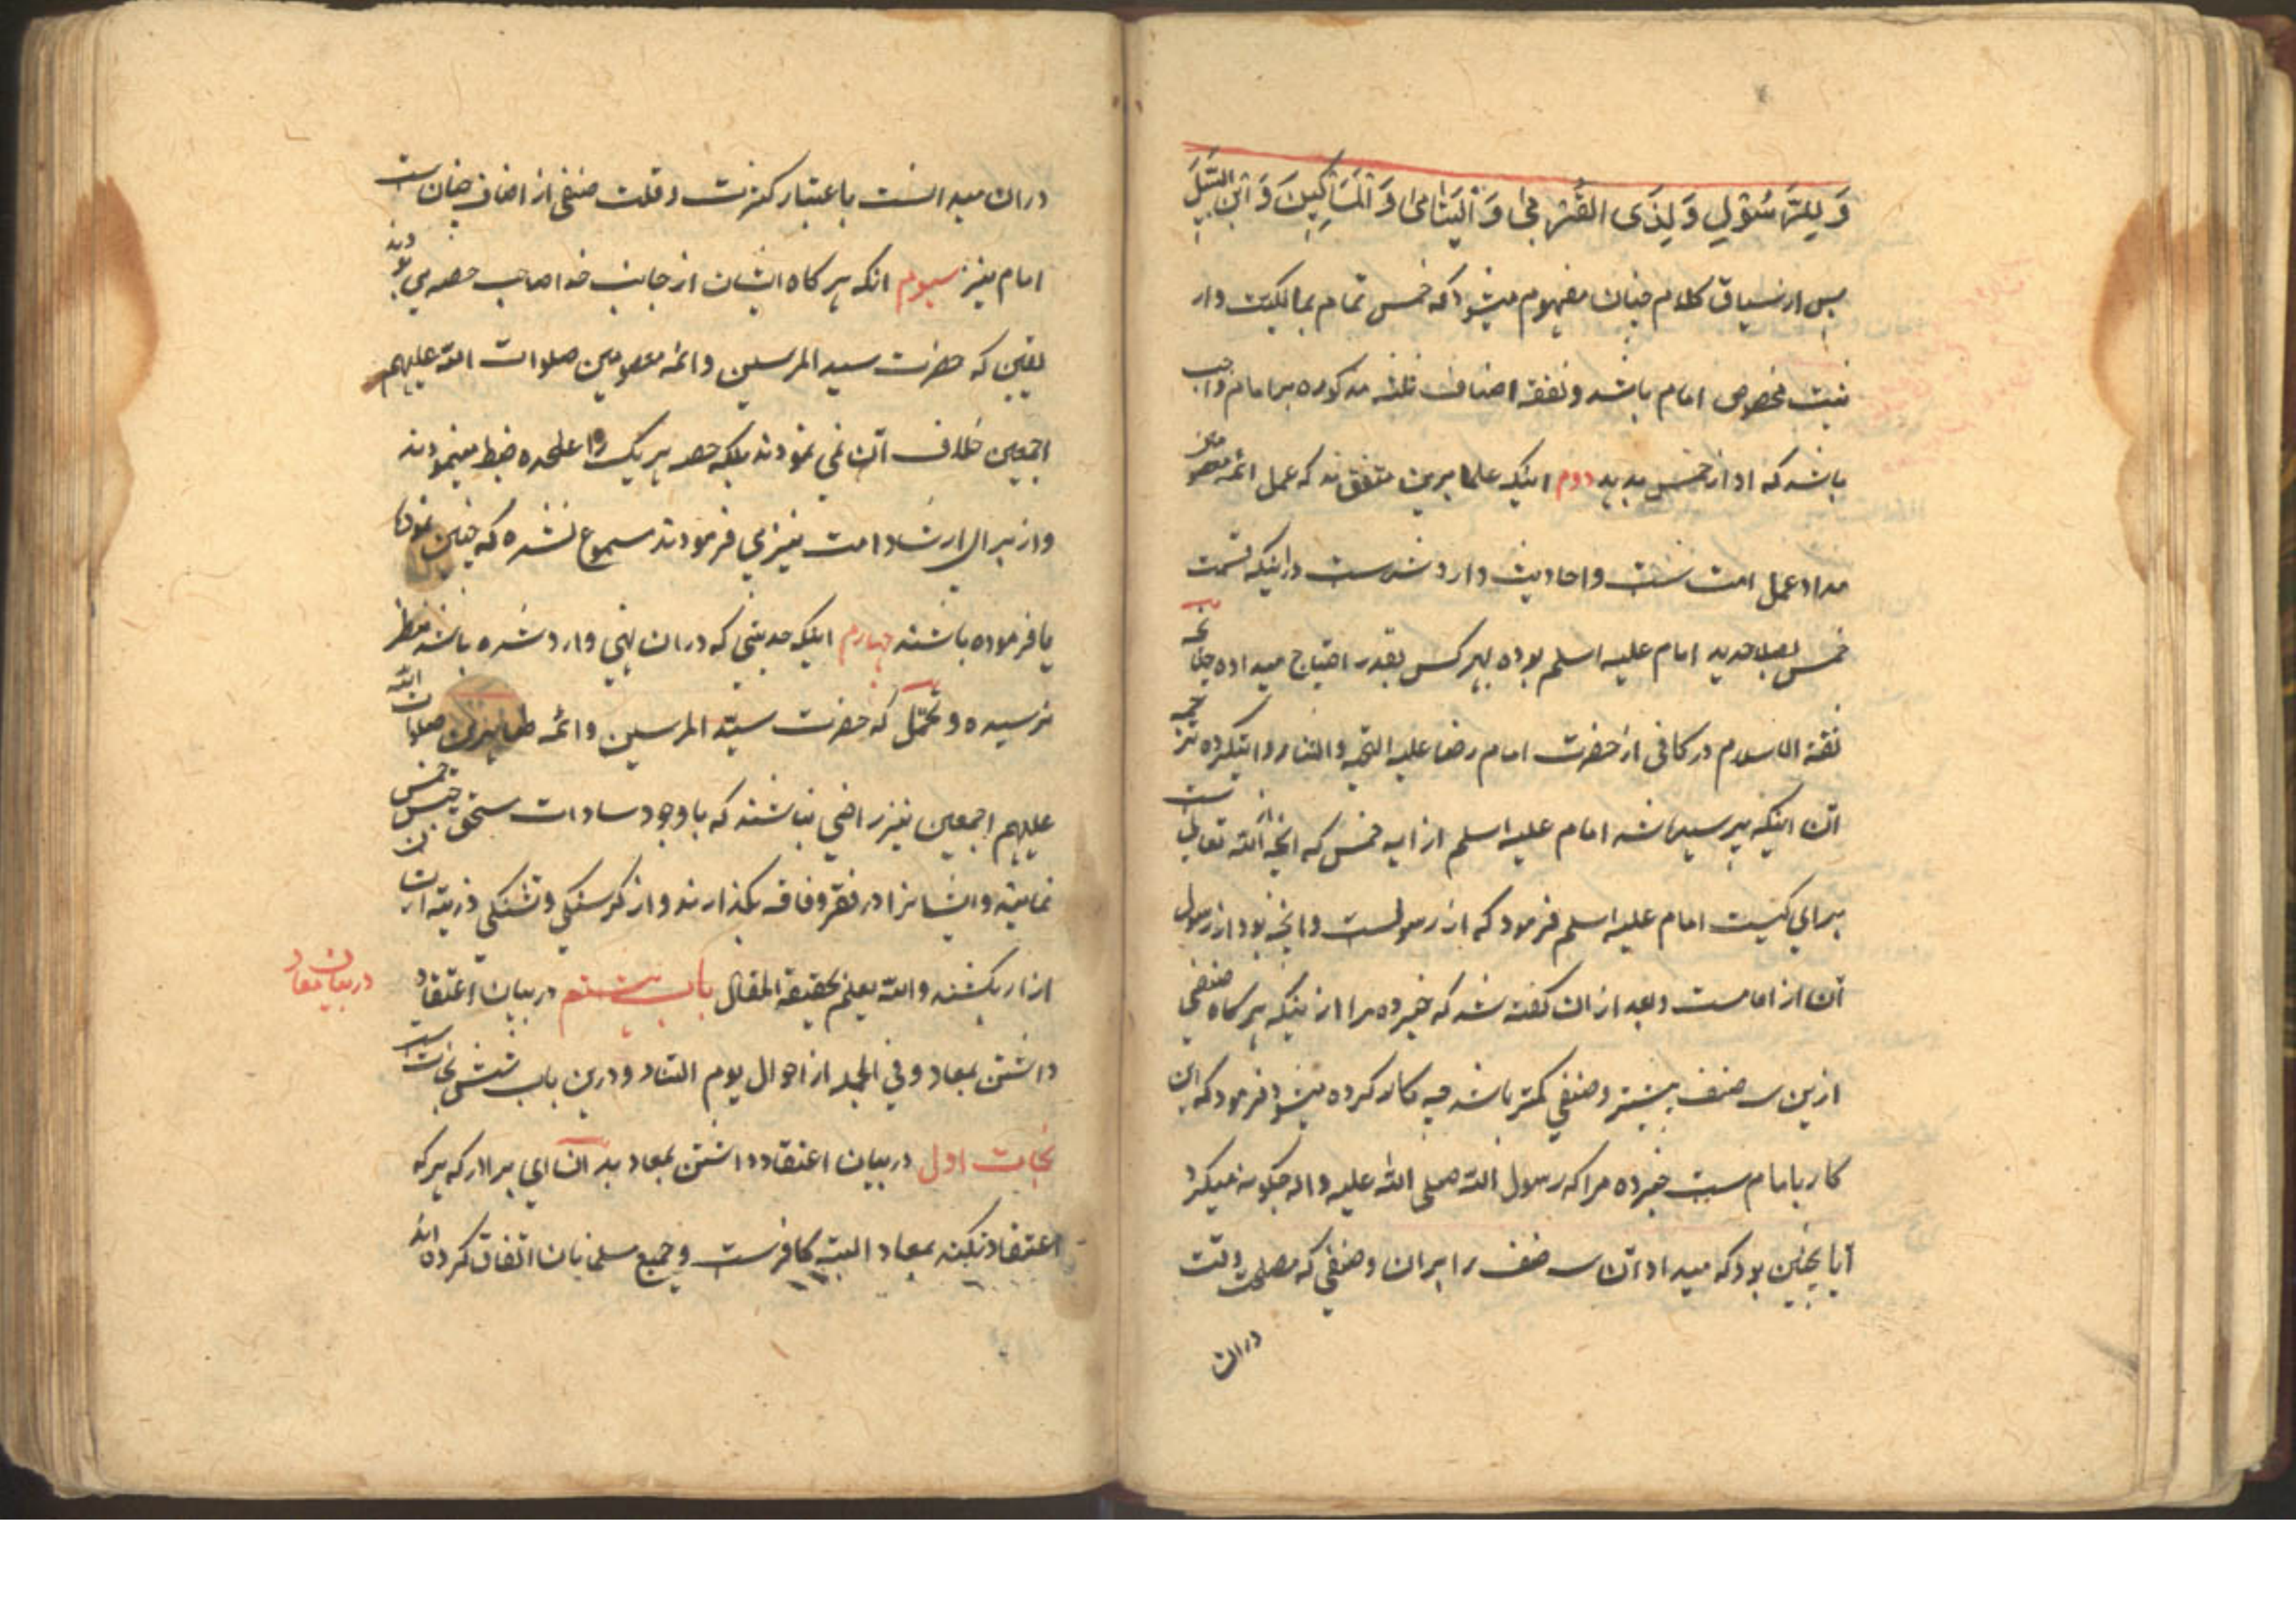 وَلِلرَّسُوْلِ وَلِذِی القُرْبٰی وَالْیَتَامٰی وَالْمَسَاکِیْنَ وَابْنِ السَّبِیْلِ
پس از سیاق کلام چنان مفهوم میشود که خمس تمام بمالکیت دار
نیت مخصوص امام باشد و نفقه اصناف ثلثه مذکوره بر امام واجب
باشد که او از خمس بدهد دوم اینکه علما برین متفق‌ند که عمل ائمه معصومین
مدار عمل امت ست و احادیث وارد شدست در اینکه قسمت
خمس بصلاحدید امام علیه اسلم بوده بهر کس بقدر احتیاج میداده چنانچه
ثقة الاسلام در کافی از حضرت امام رضا علیه التحیه و الثناء روایتکرده ترجمه
آن اینکه پرسیده شد امام علیه اسلم از ایه خمس که انچه الله تعالی ست
برای کیست امام علیه اسلم فرمود که از رسولست و انچه بود از رسول
آن از امامست و بعد ازان گفته شد که خبر ده مرا ازینکه هرگاه صنفی
ازین سه صنف بیشتر و صنفی کمتر باشد چه کار کرده میشود فرمود که این
کار بامام ست خبر ده مرا که رسول الله صلی الله علیه واله چگونه میکرد
آیا بچنین بود که میداد آن سه صنف را بران و صنفی که مصلحت وقت
دران
دران میدانست باعتبار کثرت و قلت صنفی از اصناف چنان ست
امام نیز سیوم انکه هرگاه ایشان از جانب خدا صاحب حصه می بودند
یقین که حضرت سید المرسلین و ائمه معصومین صلوات الله علیهم
اجمعین خلاف آن نمی نمودند بلکه حصه هر یک را علحده ضبط مینمودند
و از برای ارشاد امت نیز می فرمودند مسموع نشده که چنین نمودها
یا فرموده باشند چهارم اینکه حدیثی که دران نهی وارد شده باشد بنظر
نرسیده و محتمل که حضرت سید المرسلین و ائمه طاهرین صلوات الله
علیهم اجمعین نیز راضی نباشند که با وجود سادات مستحق حبس خمس
نمایند و ایشانرا در فقر و فاقه بگذارند و از گرسنگی و تشنگی ذریة ان
ازار بکشند والله یعلم بحقیقة المقال باب بیستم در بیان اعتقاد
در بیان معاد
داشتن بمعاد و فی الجمله از احوال یوم التناد و درین باب شش نجات ست
نجات اول در بیان اعتقاد داشتن بمعاد بدان ای برادر که هر که
اعتقاد نکند بمعاد البته کافرست و جمیع مسلمانان اتفاق کرده اند